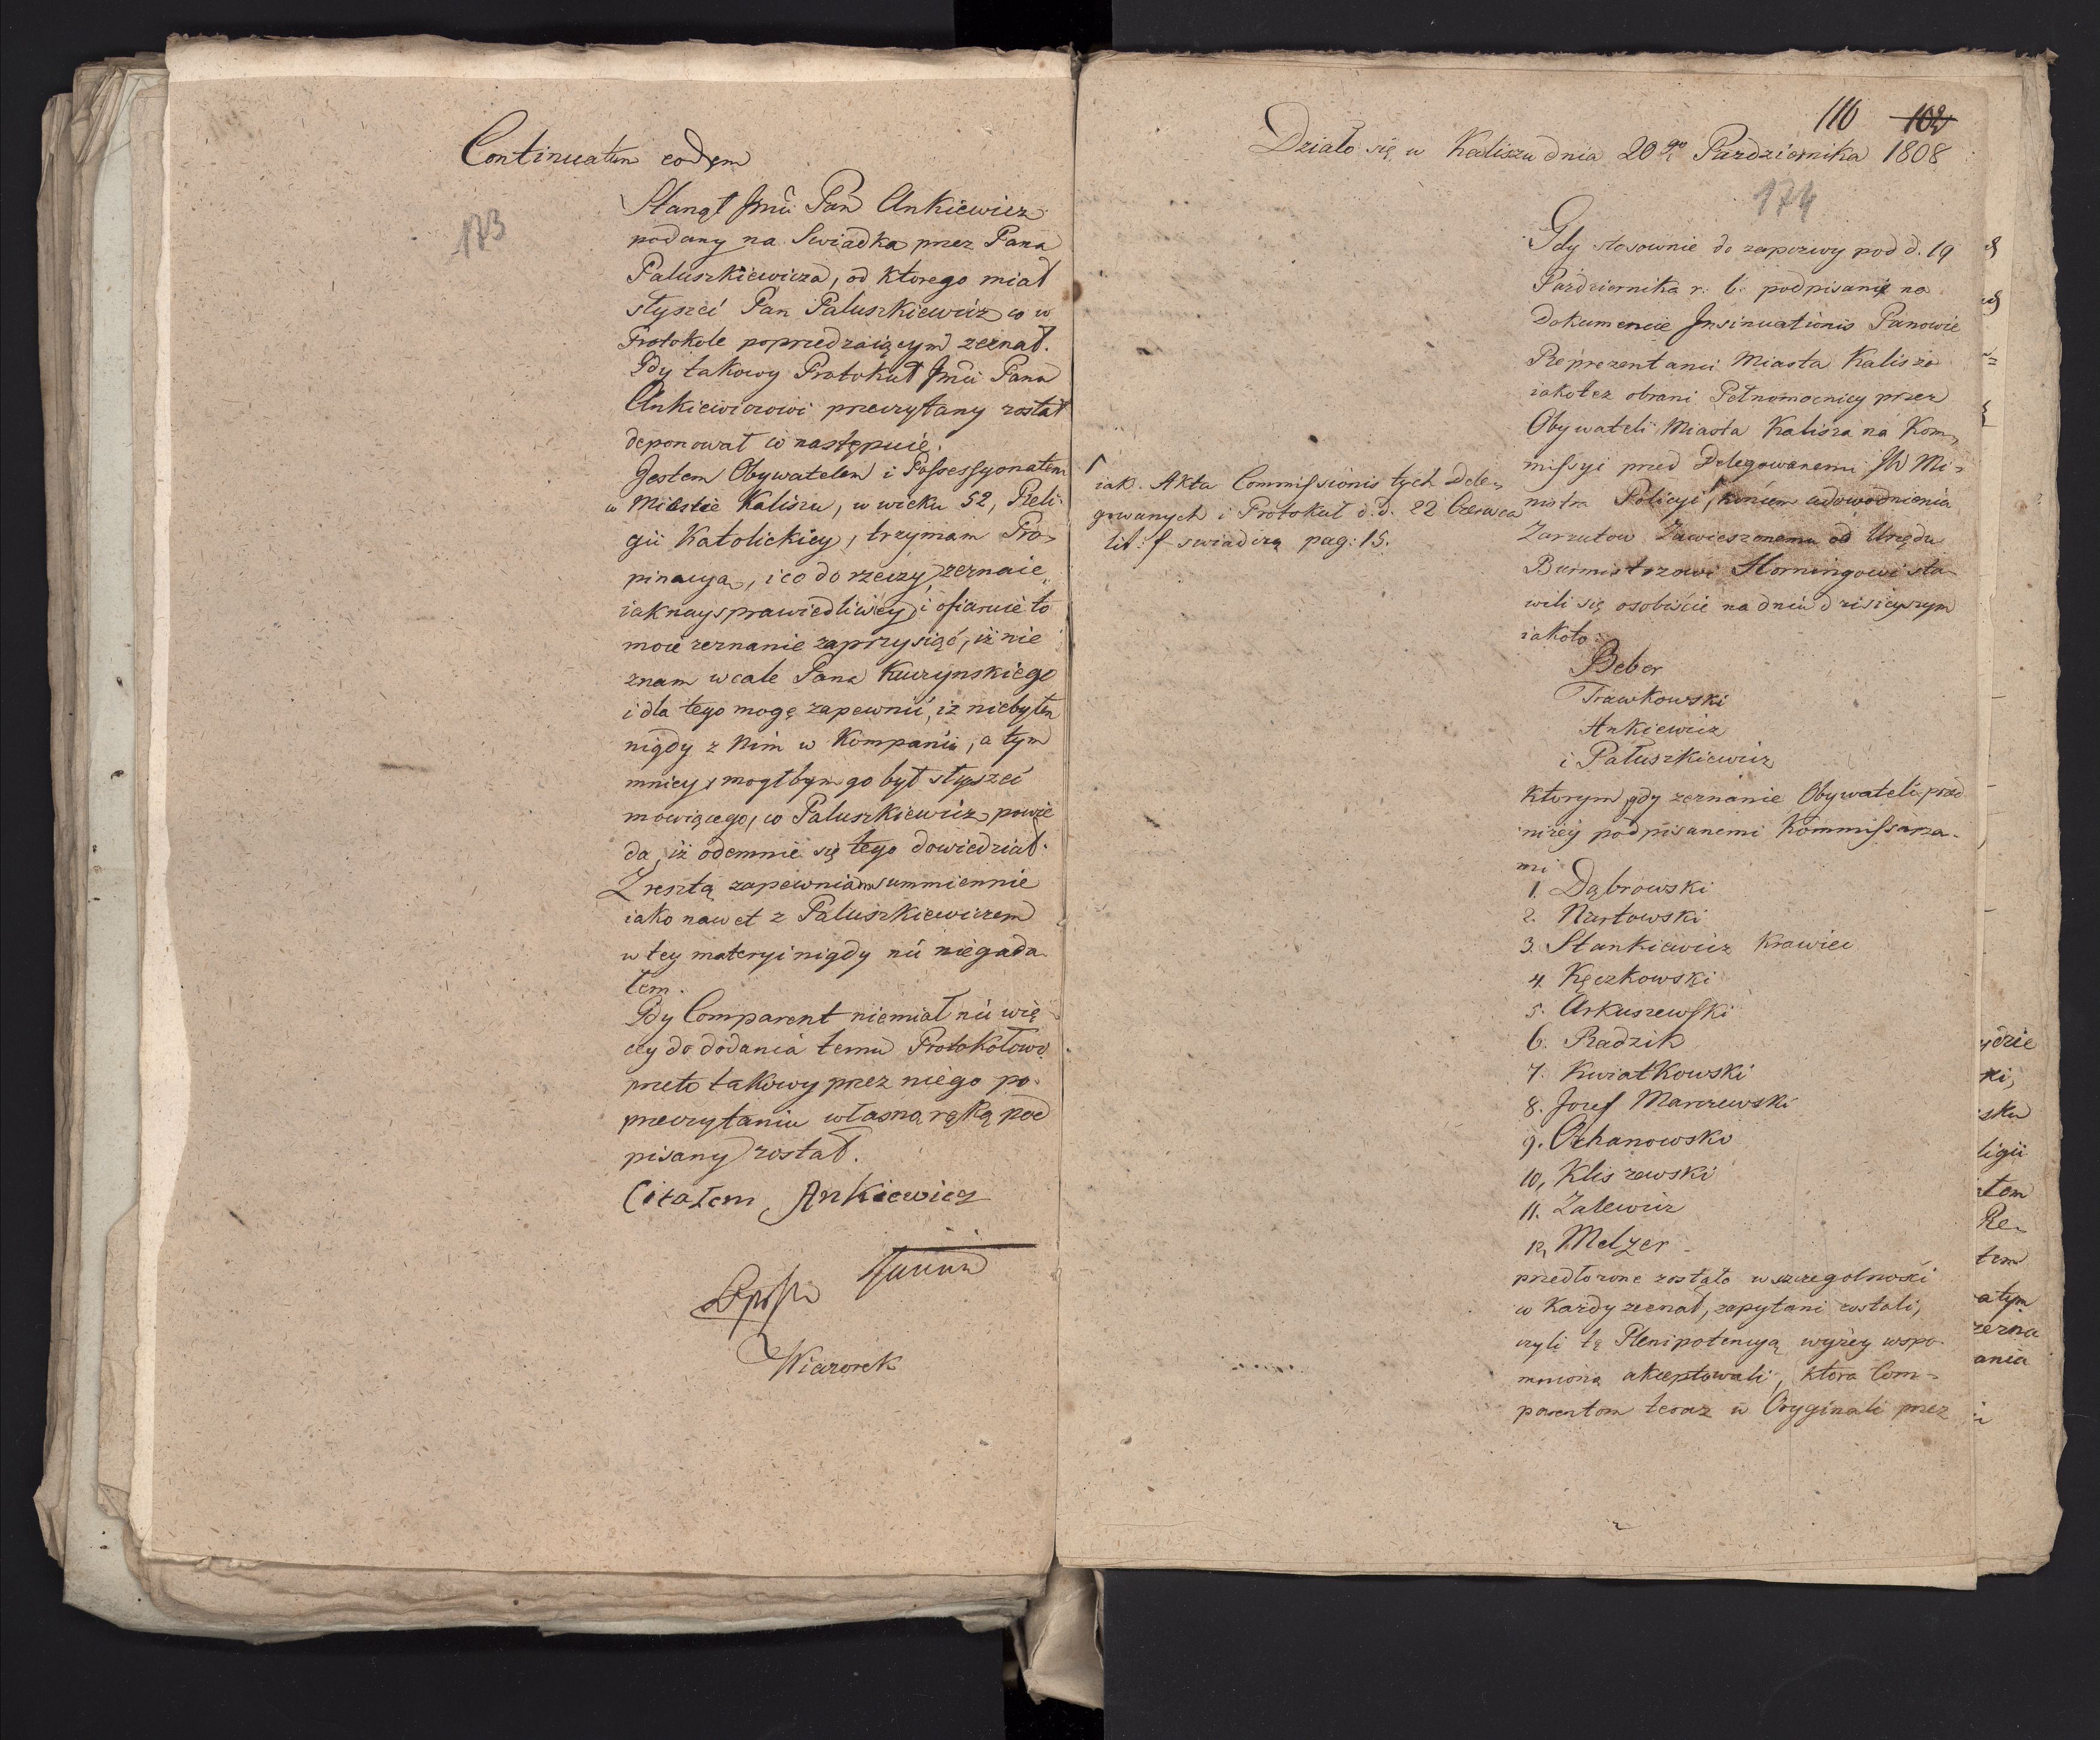 Continuatum eodem
173
Stanął Jmć Pan Ankiewicz
podany na Swiadka przez Pana
Paluszkiewicza, od ktorego miał
słyszeć Pan Paluszkiewicz co w
Protokole poprzedzaiącym zeznał.
Gdy takowy Protokuł Jmć Pana
Ankiewiczowi przeczytany został
deponował co następuie.
Jestem Obywatelem i Possessyonatem
w Mieście Kaliszu, w wieku 52, Reli-
gii Katolickiey, trzymam Pro-
pinacyą, i co do rzeczy zeznaię
iaknaysprawiedliwiey i ofiaruię to
moie zeznanie zaprzysiąć, iż nie
znam wcale Pana Kuczynskiego
i dla tego mogę zapewnić, iż niebyłem
nigdy z Nim w Kompanii, a tym
mniey mogłbym go był słyszeć
mowiącego, co Paluszkiewicz powie
da, iż odemnie się tego dowiedział.
Zresztą zapewniam summiennie
iako nawet z Paluszkiewiczem
w tey materyi nigdy nic niegada-
łem.
Gdy Comparent niemiał nic wię-
cey do dodania temu Protokołowi
przeto takowy przez niego po
przeczytaniu własną ręką pod
pisany został.
Citałem Ankiewicz
Wieczorek
116 102
Działo się w Kaliszu dnia 20go Pazdziernika 1808
174
Gdy stosownie do zapozwy pod d. 19
Pazdziernika r. b. podpisani na
Dokumencie Insinuationis Panowie
Reprezentanci Miasta Kalisza
iakotez obrani Pełnomocnicy przez
Obywateli Miasta Kalisza na Kom-
missyi przed Delegowanemi JW Mi-
nistra Policyi, koncem udowodnienia
Zarzutow Zawieszonemu od Urzędu
Burmistrzowi Horningowi sta-
wili się osobiście na dniu dzisieyszym
iakoto:
iak. Akta Commissionis tych Dele-
gowanych i Protokuł d. d. 22 Czerwca
lit: f swiadczą pag: 15.
Beber
Trawkowski
Ankiewicz
i Paluszkiewicz
ktorym gdy zeznanie Obywateli przed
niżey podpisanemi Kommissarza-
mi
1. Dąbrowski
2. Nartowski
3. Stankiewicz Krawiec
4. Kęczkowski
5. Arkuszewski
6. Radzik
7. Kwiatkowski
8. Jozef Marczewski
9. Ochanowski
10, Kliszewski
11. Zalewicz
12, Melzer
przedłożone zostało w szczegolnosci
co każdy zeznał, zapytani zostali,
czyli tę Plenipotencyą wyżey wspo-
mnioną akceptowali, ktora Com-
parentom teraz w Oryginali przez